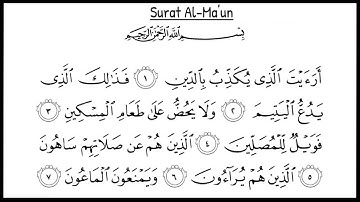 Surat Al-Ma'un
بِسْمِ اللَّهِ الرَّحْمَٰنِ الرَّحِيمِ
أَرَءَيْتَ الَّذِي يُكَذِّبُ بِالدِّينِ ١ فَذَٰلِكَ الَّذِي
يَدُعُّ الْيَتِيمَ ٢ وَلَا يَحُضُّ عَلَىٰ طَعَامِ الْمِسْكِينِ ٣
فَوَيْلٌ لِّلْمُصَلِّينَ ٤ الَّذِينَ هُمْ عَن صَلَاتِهِمْ سَاهُونَ
٥ الَّذِينَ هُمْ يُرَاءُونَ ٦ وَيَمْنَعُونَ الْمَاعُونَ ٧